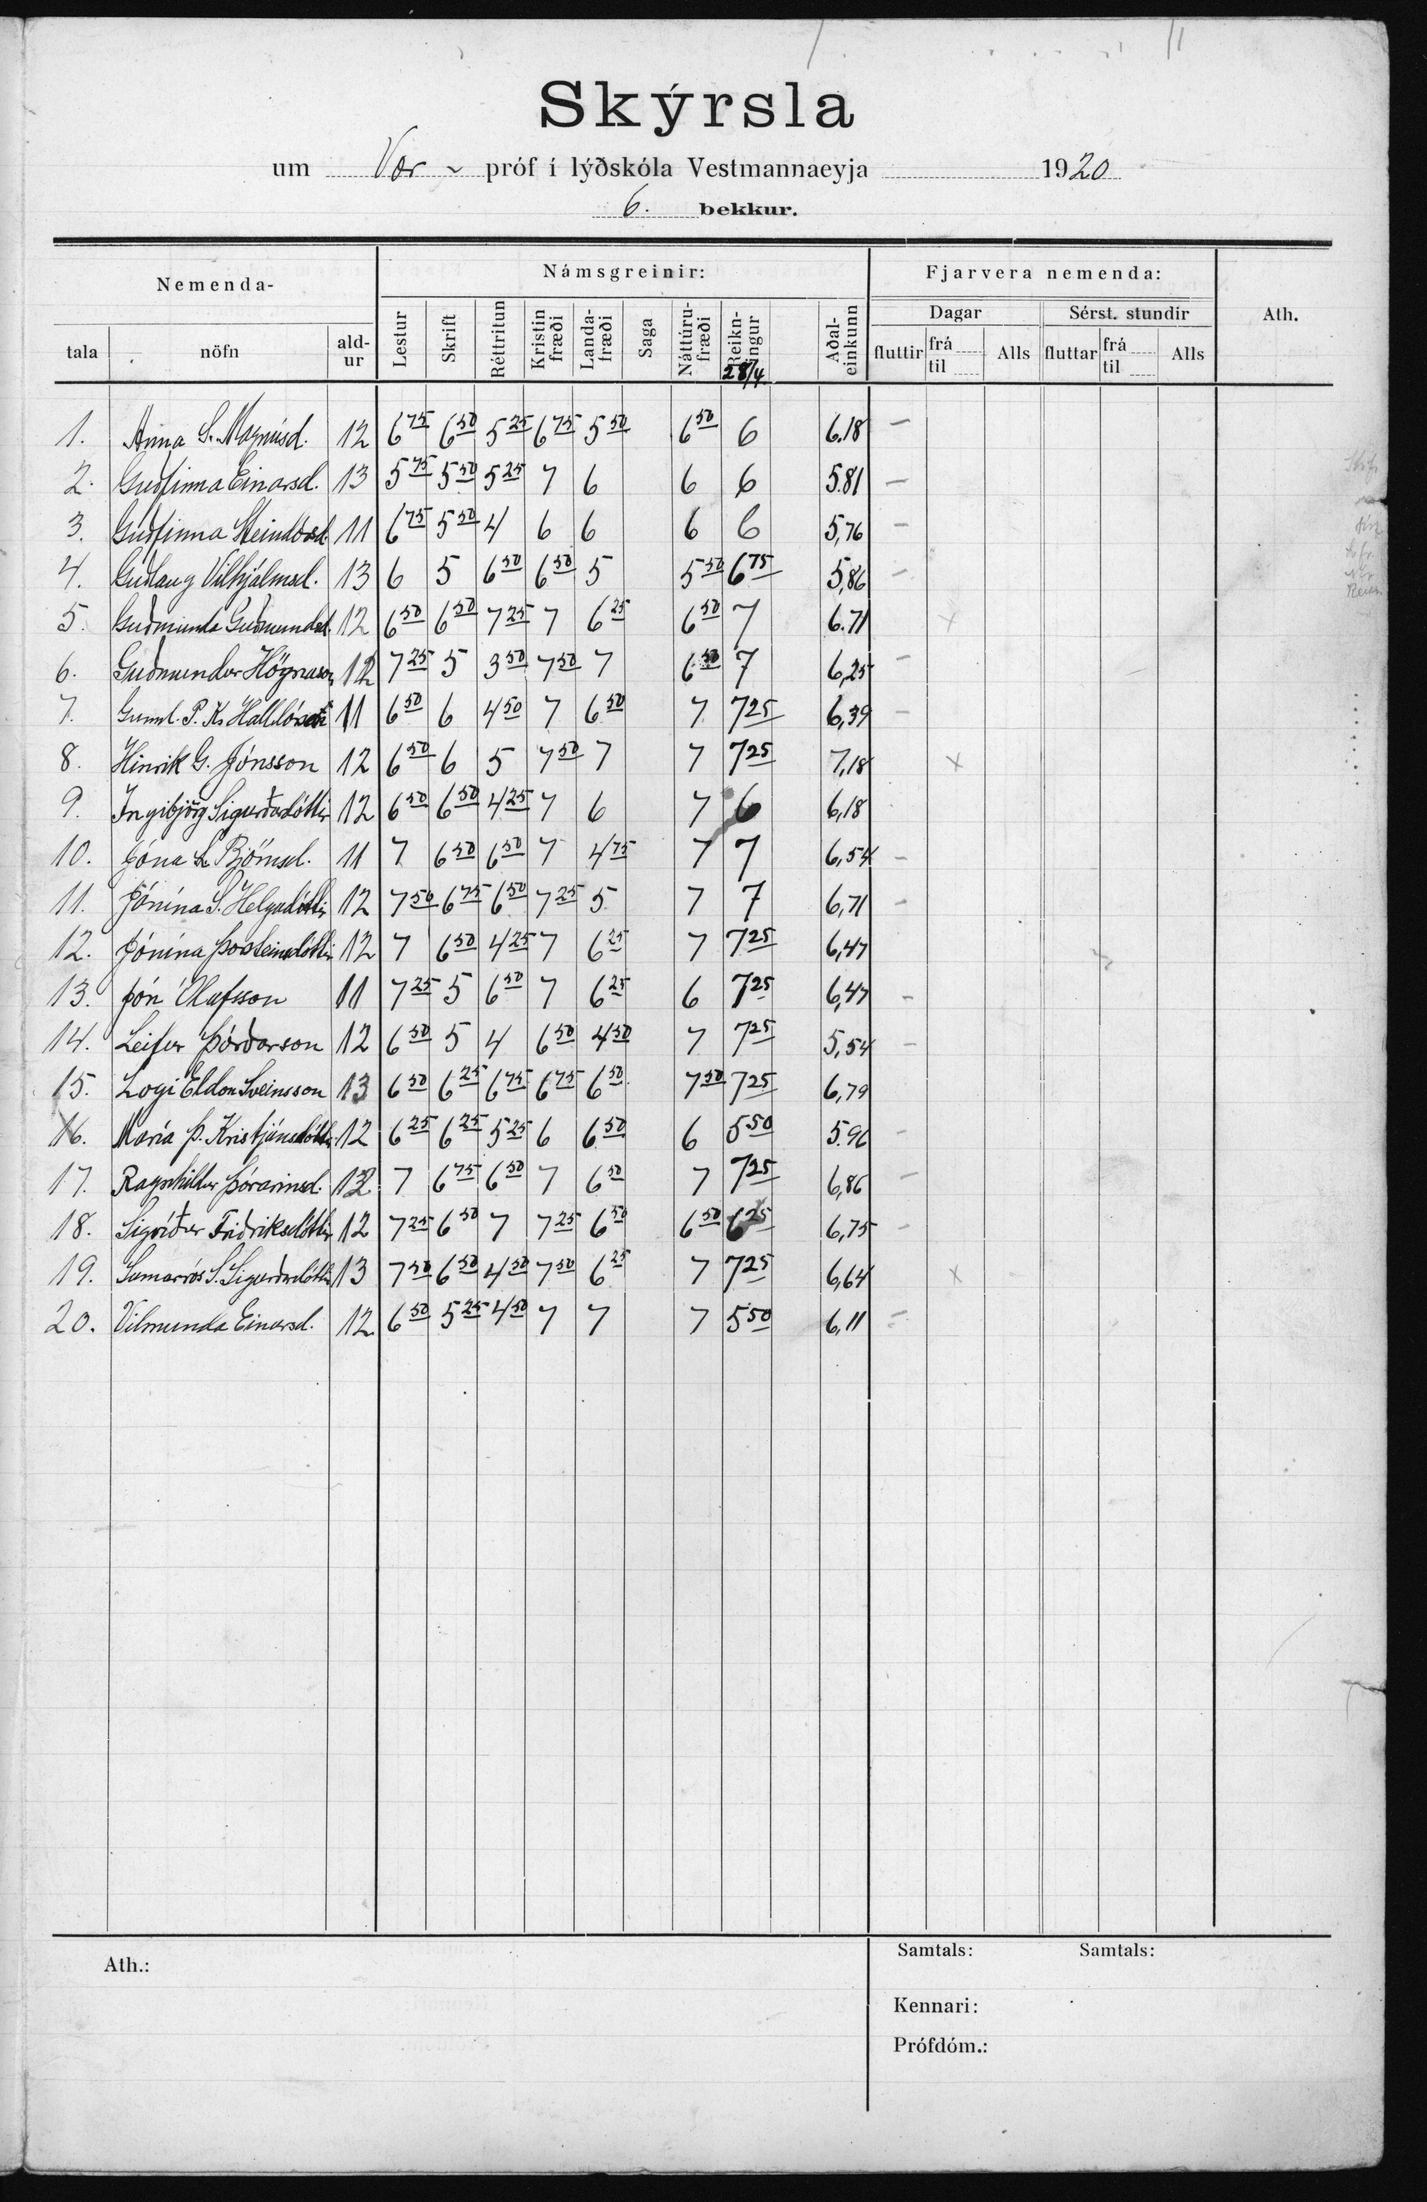 Skýrsla
um Vor ~ próf í lýðskóla Vestmannaeyja 1920
6. bekkur.
Nemenda- Námsgreinir: Fjarvera nemenda: Ath.
tala nöfn ald-ur Lestur Skrift Réttritun Kristin fræði Landa-fræði Saga Náttúru-fræði Reikn-ingur 28/4 Aðal-einkunn Dagar Sérst. stundir
fluttir frá til Alls fluttar frá til Alls
1. Anna S. Magnúsd. 12 6 75 6 50 5 25 6 75 5 50 6 50 6 6.18 —
2. Guðfinna Einarsd. 13 5 75 5 50 5 25 7 6 6 6 5.81 —
3. Guðfinna Steindórsd. 11 6 75 5 50 4 6 6 6 6 5,76 —
4. Guðlaug Vilhjálmsd. 13 6 5 6 50 6 50 5 5 50 6 75 5,86 —
5. Guðmunda Guðmundsd. 12 6 50 6 50 7 25 7 6 25 6 50 7 6.71 x
6. Guðmundur Högnason 12 7 25 5 3 50 7 50 7 6 50 7 6,25 —
7. Gunnl. P. Kr. 11 6 50 6 4 50 7 6 50 7 7 25 6,39 —
8. Hinrik G. Jónsson 12 6 50 6 5 7 50 7 7 7 25 7,18 x
9. Ingibjörg Sigurðardóttir 12 6 50 6 50 4 25 7 6 7 6 6,18
10. Jóna Björnsd. 11 7 6 50 6 50 7 4 75 7 7 6,54 —
11. Jónína S. Helgadóttir 12 7 50 6 75 6 50 7 25 5 7 7 6,71 —
12. Jónína Þorsteinsdóttir 12 7 6 50 4 25 7 6 25 7 7 25 6,47
13. Jón Ólafsson 11 7 25 5 6 50 7 6 25 6 7 25 6,47 —
14. Leifur Þórðarson 12 6 50 5 4 6 50 4 50 7 7 25 5,54 —
15. Logi Eldon Sveinsson 13 6 50 6 25 6 75 6 75 6 50 7 50 7 25 6,79
16. María Þ. Kristjánsdóttir 12 6 25 6 25 5 25 6 6 50 6 5 50 5.96 —
17. Ragnhildur Þórarinsd. 12 7 6 75 6 50 7 6 50 7 7 25 6,86 —
18. Sigríður Friðriksdóttir 12 7 25 6 50 7 7 25 6 50 6 50 6 25 6,75 —
19. Sumarrós S. Sigurðardóttir 13 7 50 6 50 4 50 7 50 6 25 7 7 25 6,64 x
20. Vilmunda Einarsd. 12 6 50 5 25 4 50 7 7 7 5 50 6,11 —
Ath.: Samtals: Samtals:
Kennari:
Prófdóm.: